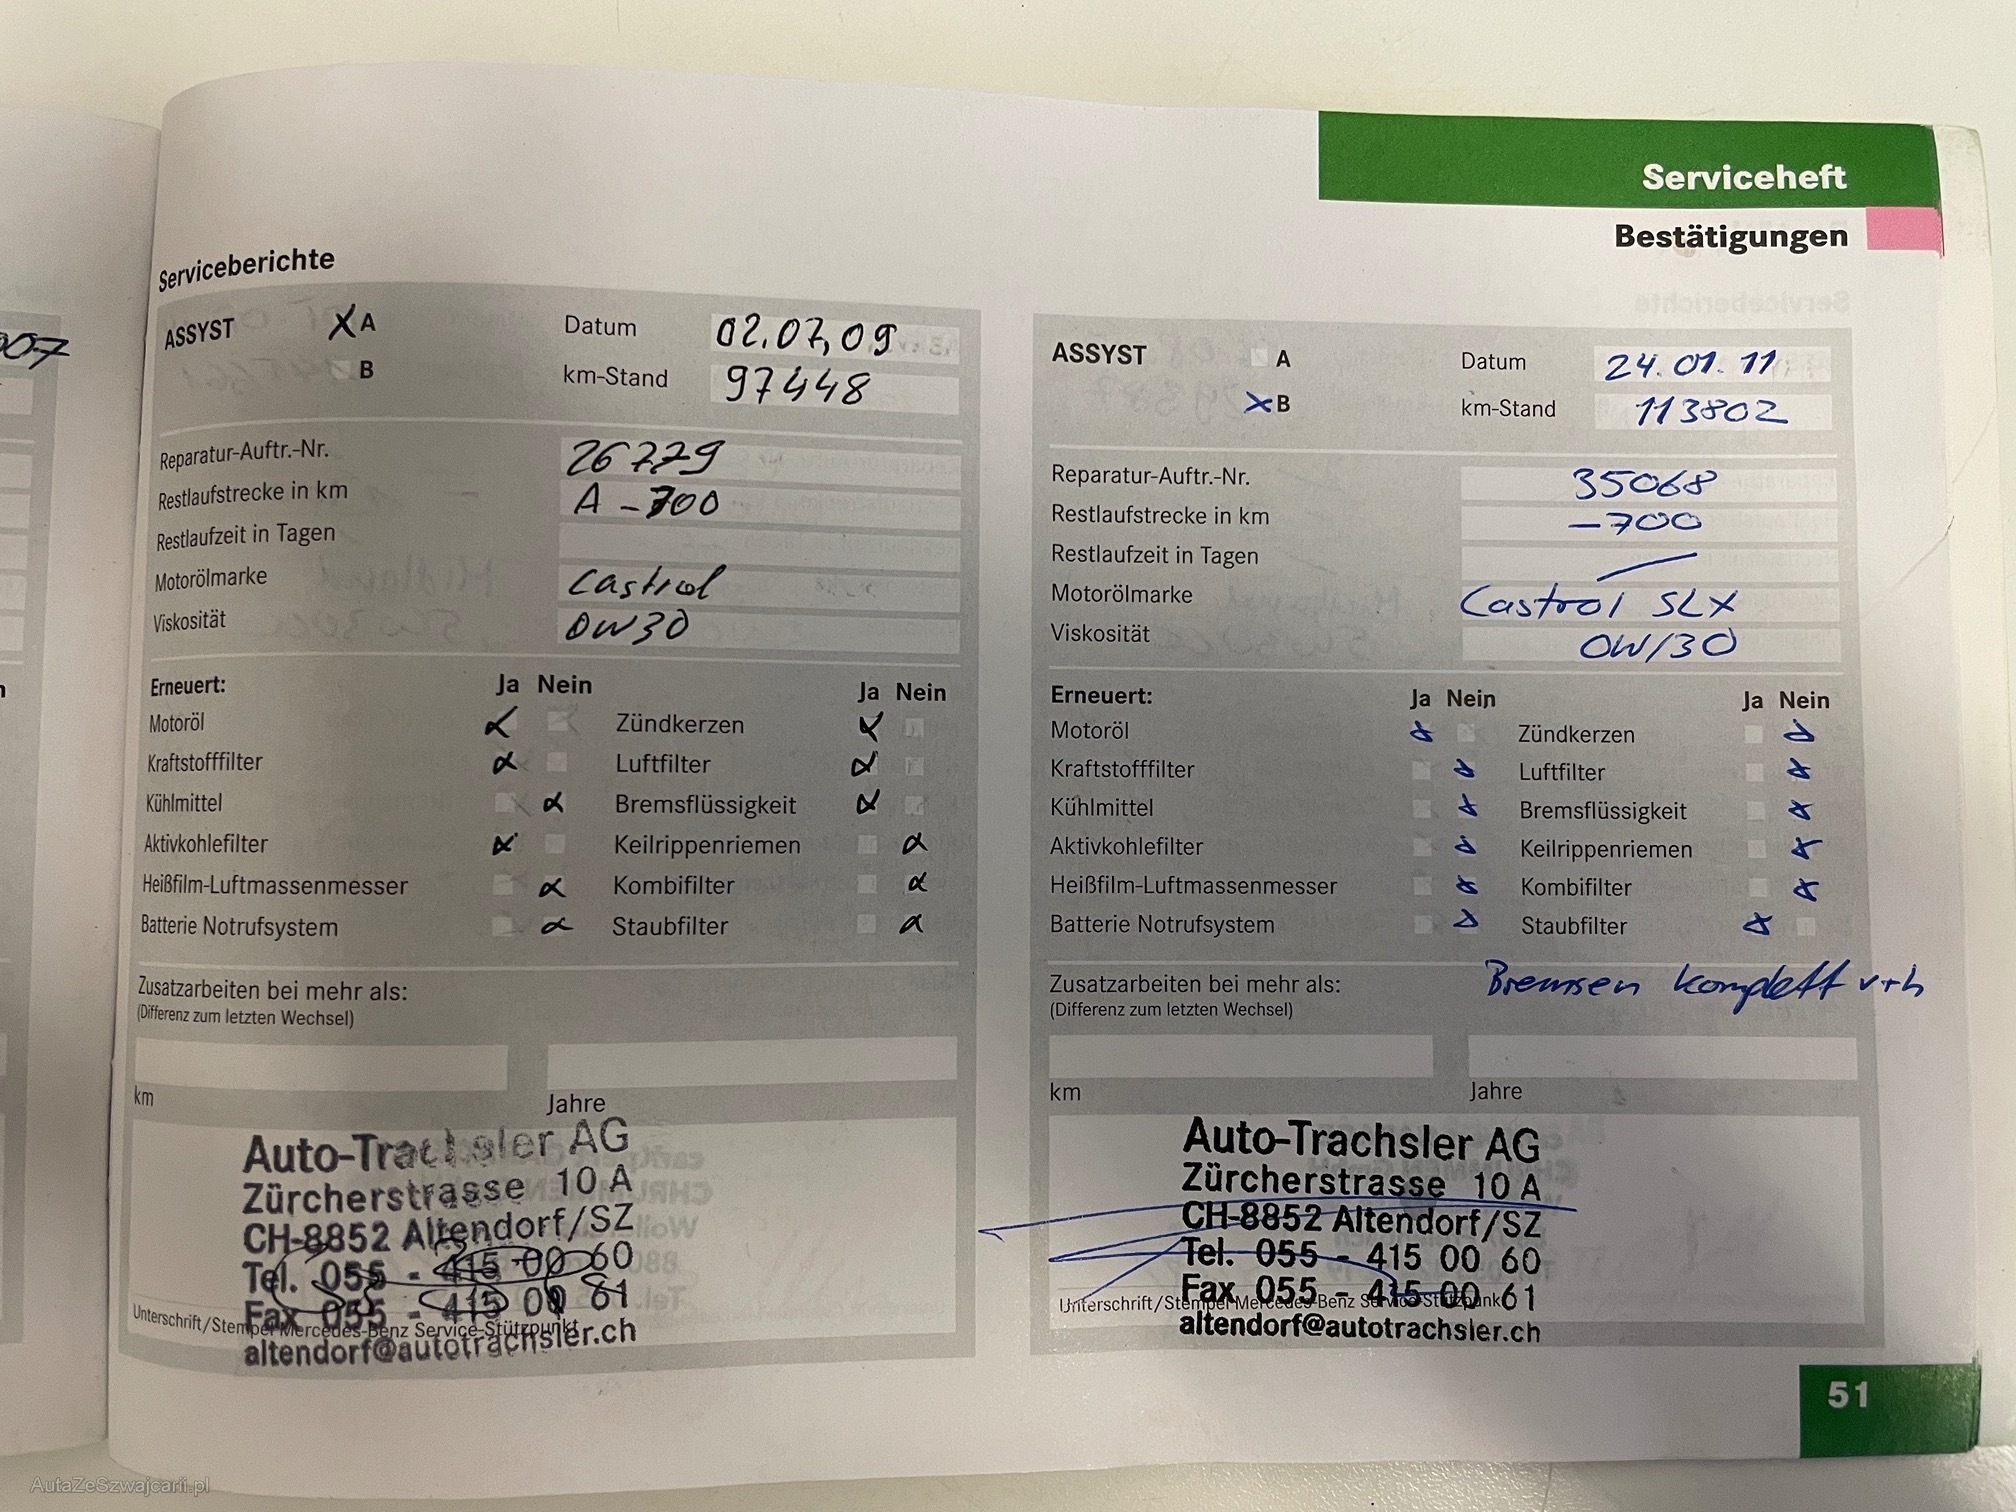 Serviceheft
Bestätigungen
007
Serviceberichte
ASSYST X A Datum 02.07.09
B km-Stand 97448
Reparatur-Auftr.-Nr. 26779
Restlaufstrecke in km A -700
Restlaufzeit in Tagen
Motorölmarke Castrol
Viskosität 0W30
Erneuert: Ja Nein Ja Nein
Motoröl Zündkerzen
Kraftstofffilter Luftfilter
Kühlmittel Bremsflüssigkeit
Aktivkohlefilter Keilrippenriemen
Heißfilm-Luftmassenmesser Kombifilter
Batterie Notrufsystem Staubfilter
Zusatzarbeiten bei mehr als:
(Differenz zum letzten Wechsel)
km Jahre
Auto-Trachsler AG
Zürcherstrasse 10 A
CH-8852 Altendorf/SZ
Tel. 055 - 415 00 60
Fax 055 - 415 00 61
Unterschrift/Stempel Mercedes-Benz Service-Stützpunkt
altendorf@autotrachsler.ch
ASSYST A Datum 24.01.11
X B km-Stand 113802
Reparatur-Auftr.-Nr. 35068
Restlaufstrecke in km -700
Restlaufzeit in Tagen
Motorölmarke Castrol SLX
Viskosität 0W/30
Erneuert: Ja Nein Ja Nein
Motoröl Zündkerzen
Kraftstofffilter Luftfilter
Kühlmittel Bremsflüssigkeit
Aktivkohlefilter Keilrippenriemen
Heißfilm-Luftmassenmesser Kombifilter
Batterie Notrufsystem Staubfilter
Zusatzarbeiten bei mehr als: Bremsen komplett v+h
(Differenz zum letzten Wechsel)
km Jahre
Auto-Trachsler AG
Zürcherstrasse 10 A
CH-8852 Altendorf/SZ
Tel. 055 - 415 00 60
Fax 055 - 415 00 61
Unterschrift/Stempel Mercedes-Benz Service-Stützpunkt
altendorf@autotrachsler.ch
51
AutaZeSzwajcarii.pl